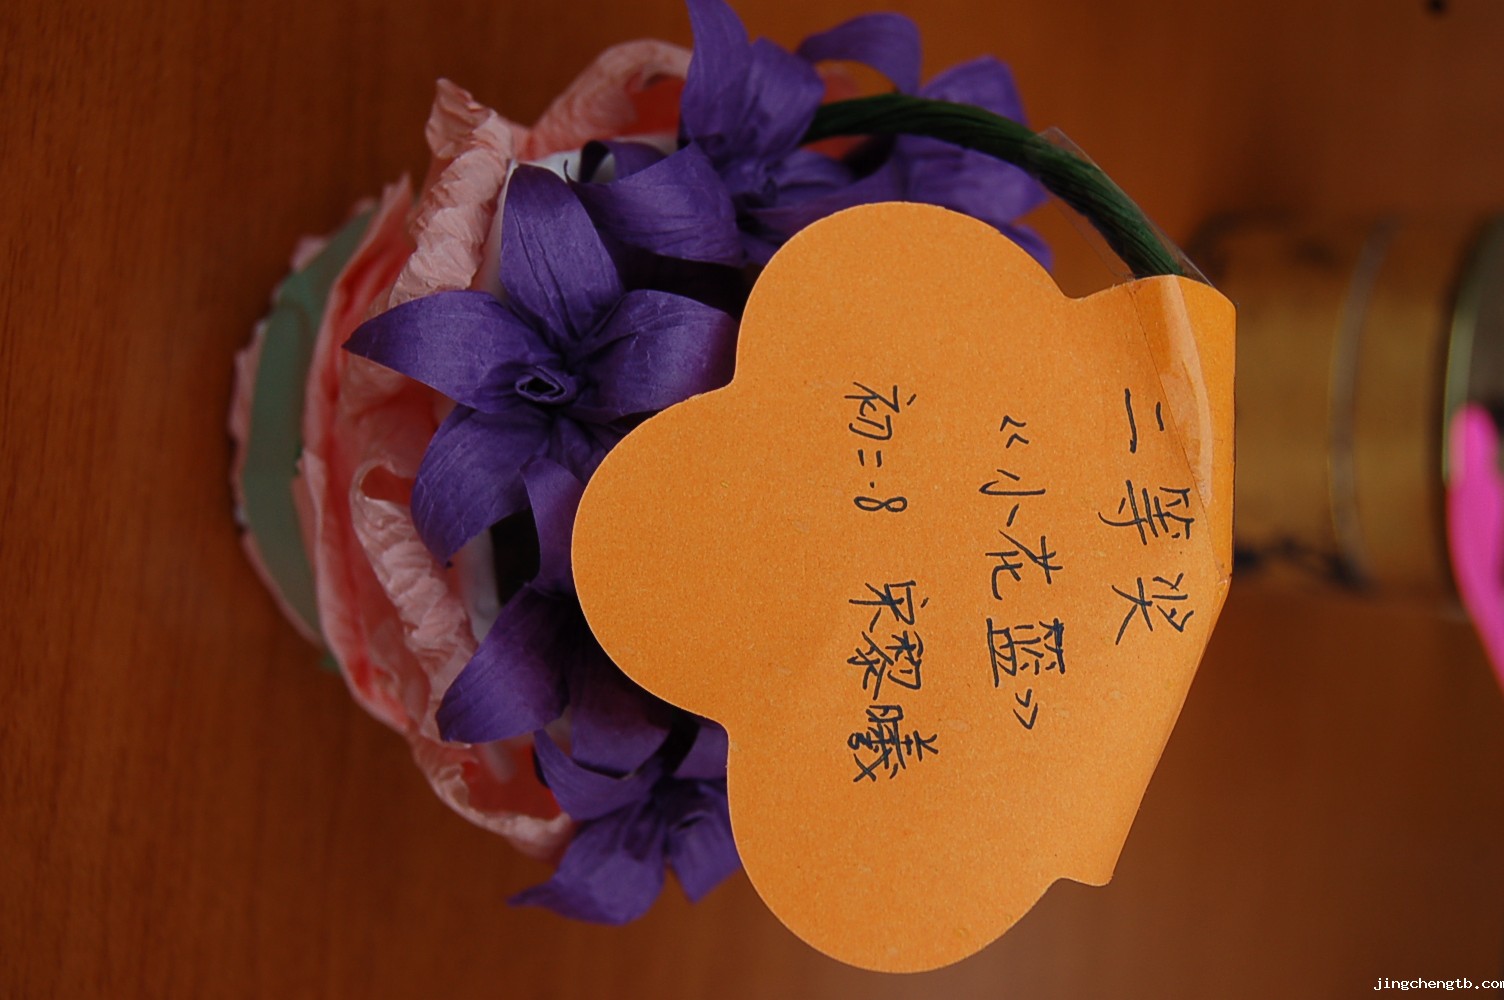 二等奖
《小花篮》
初二.8 宋黎曦
jingchengtb.com